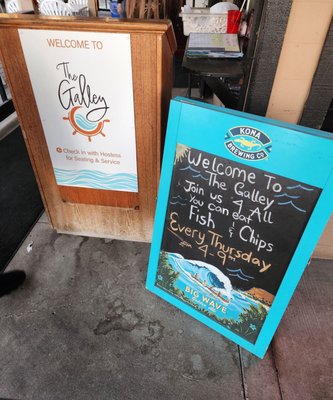 WELCOME TO
The
Galley
Check in with Hostess
for Seating & Service
KONA
BREWING CO
Welcome To
The Galley
Join us 4 All
You can eat
Fish & Chips
Every Thursday
4-9pm
BIG WAVE